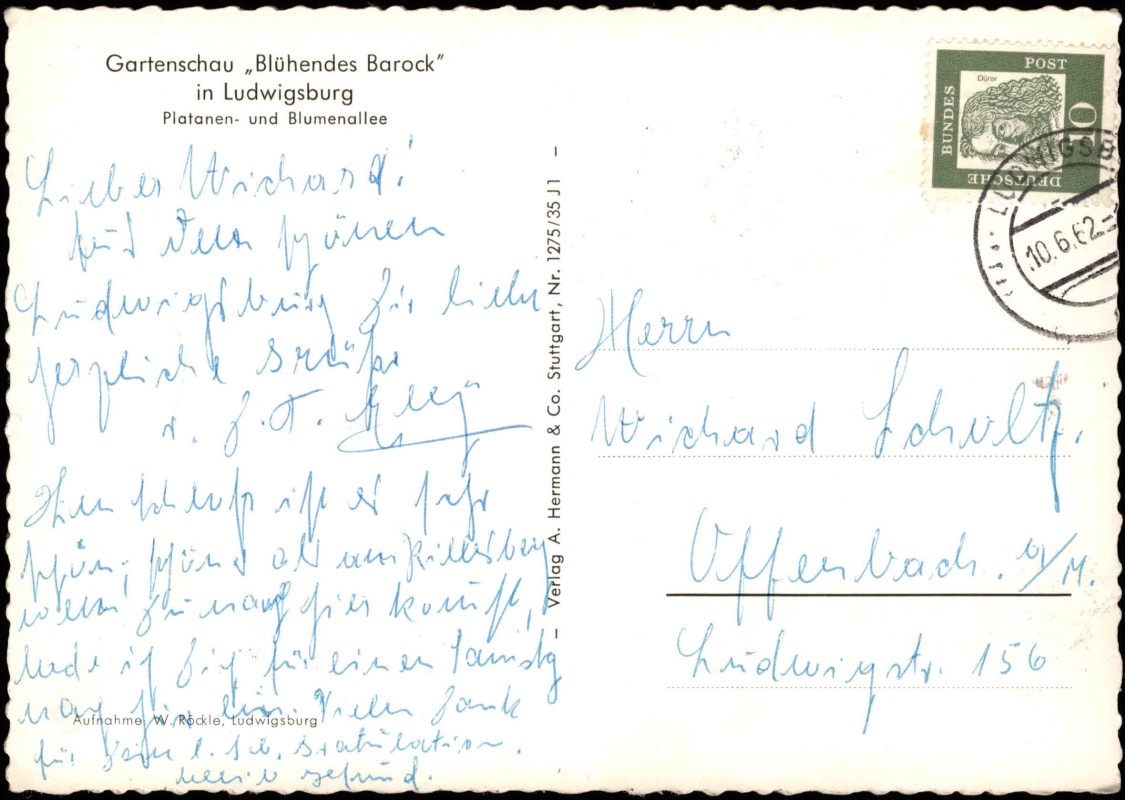 Gartenschau „Blühendes Barock"
in Ludwigsburg
Platanen- und Blumenallee
Lieber Wichard!
Aus dem schönen
Ludwigsburg Dir liebe
herzliche Grüße
Hier selbst ist es sehr
schön, schöner als am Killesberg
wenn Du nach hier kommst,
lade ich Dich für einen Samstag
nach hier ein. Vielen Dank
für Deine l. Gratulation.
gesund.
Aufnahme W. Röckle, Ludwigsburg
– Verlag A. Hermann & Co. Stuttgart, Nr. 1275/35 J1 –
DEUTSCHE BUNDES POST
Dürer
10
LUDWIGSB
10.6.62
Herrn
Wichard Schultz.
Offenbach. a/M.
Ludwigstr. 156